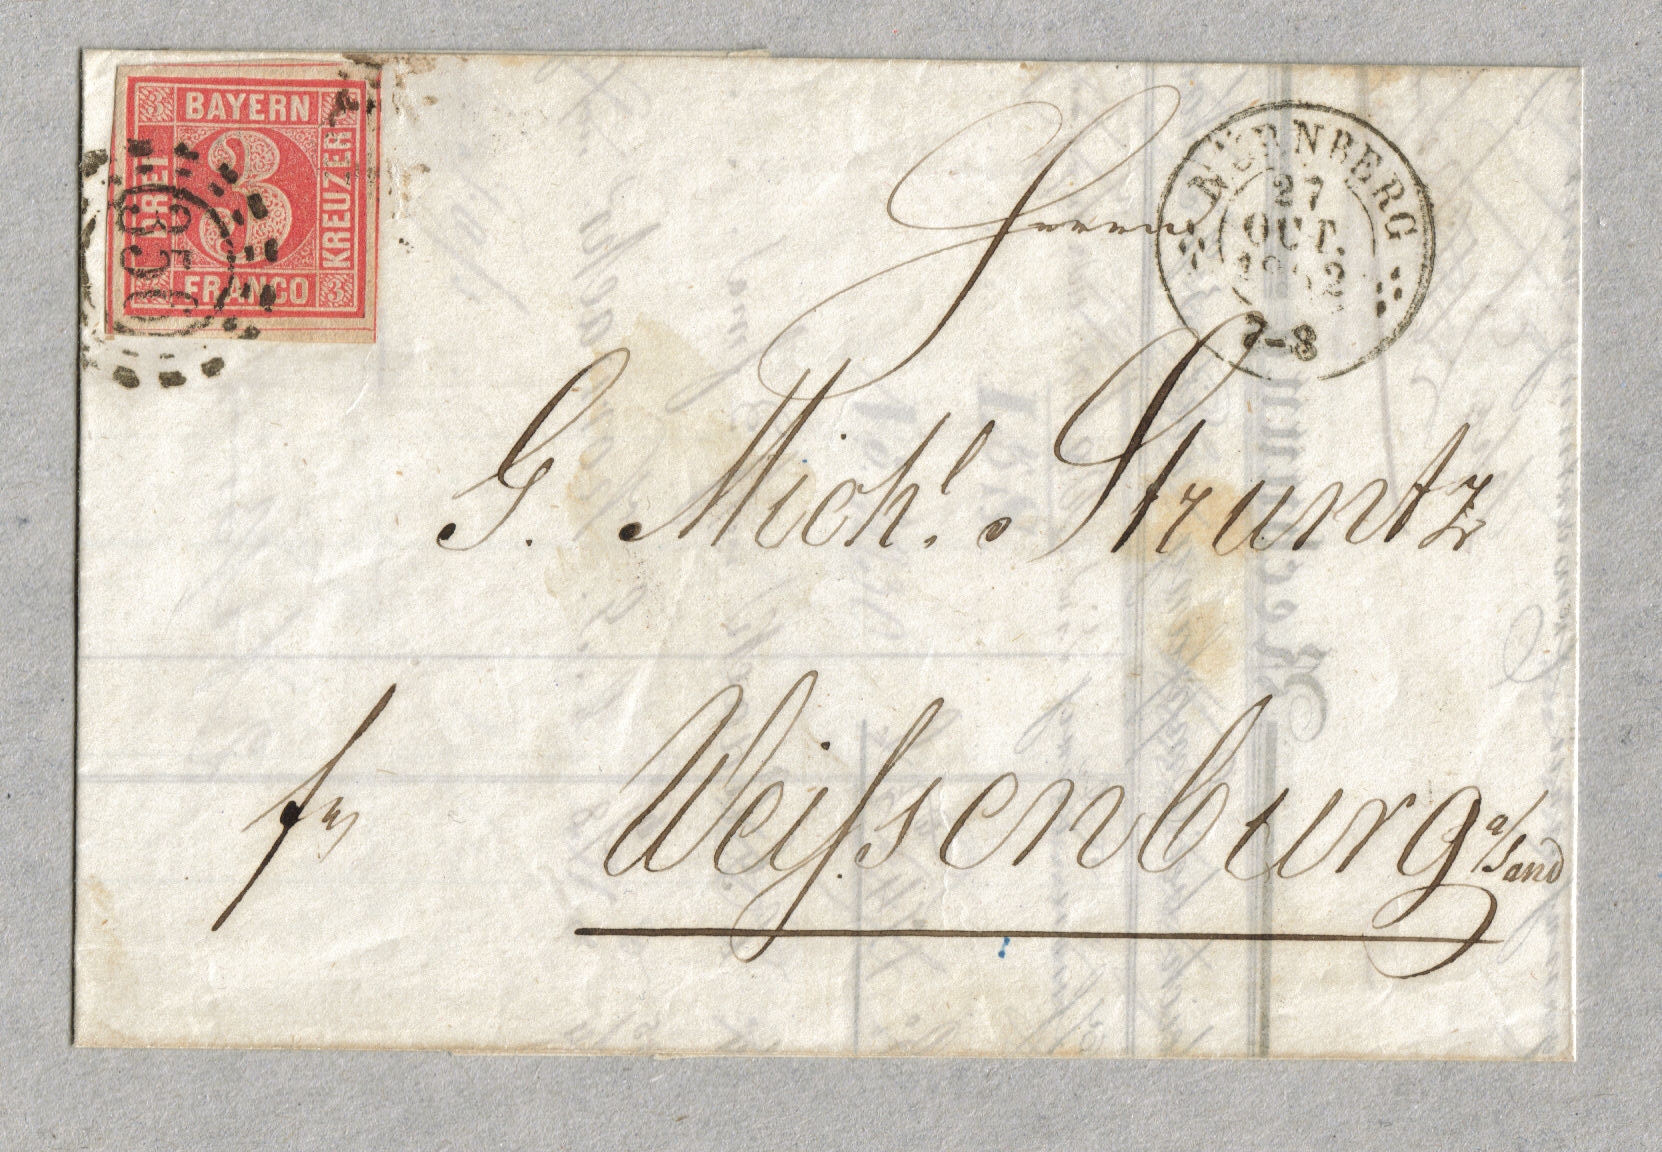 BAYERN
3
DREI
KREUZER
FRANCO
3
3
356
NÜRNBERG
27
OCT.
1862
7-8
Herrn
G. Michl. Struntz
Weissenburg a/Sand